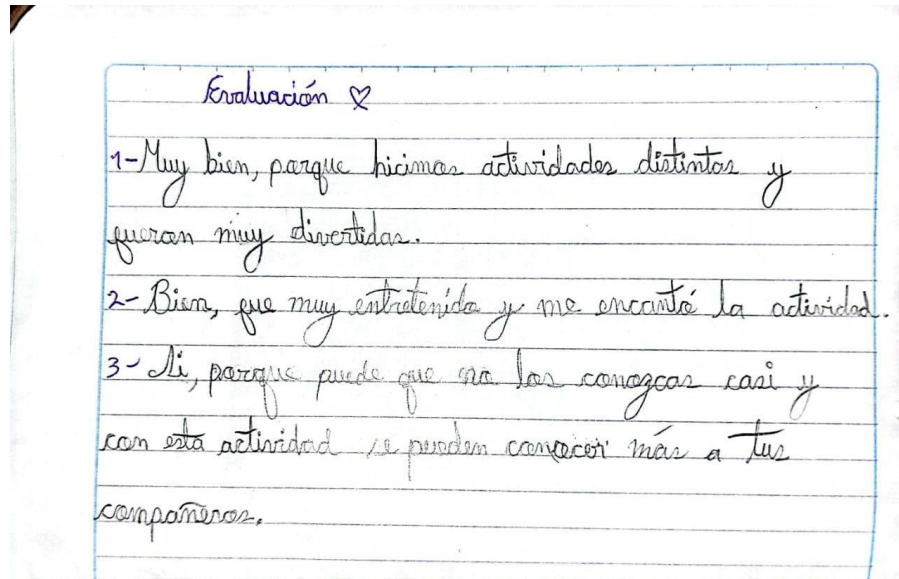 Evaluación ♡
1-Muy bien, porque hicimos actividades distintas y
fueron muy divertidas.
2- Bien, fue muy entretenido y me encantó la actividad.
3- Si, porque puede que no los conozcas casi y
con esta actividad se pueden conocer más a tus
compañeros.